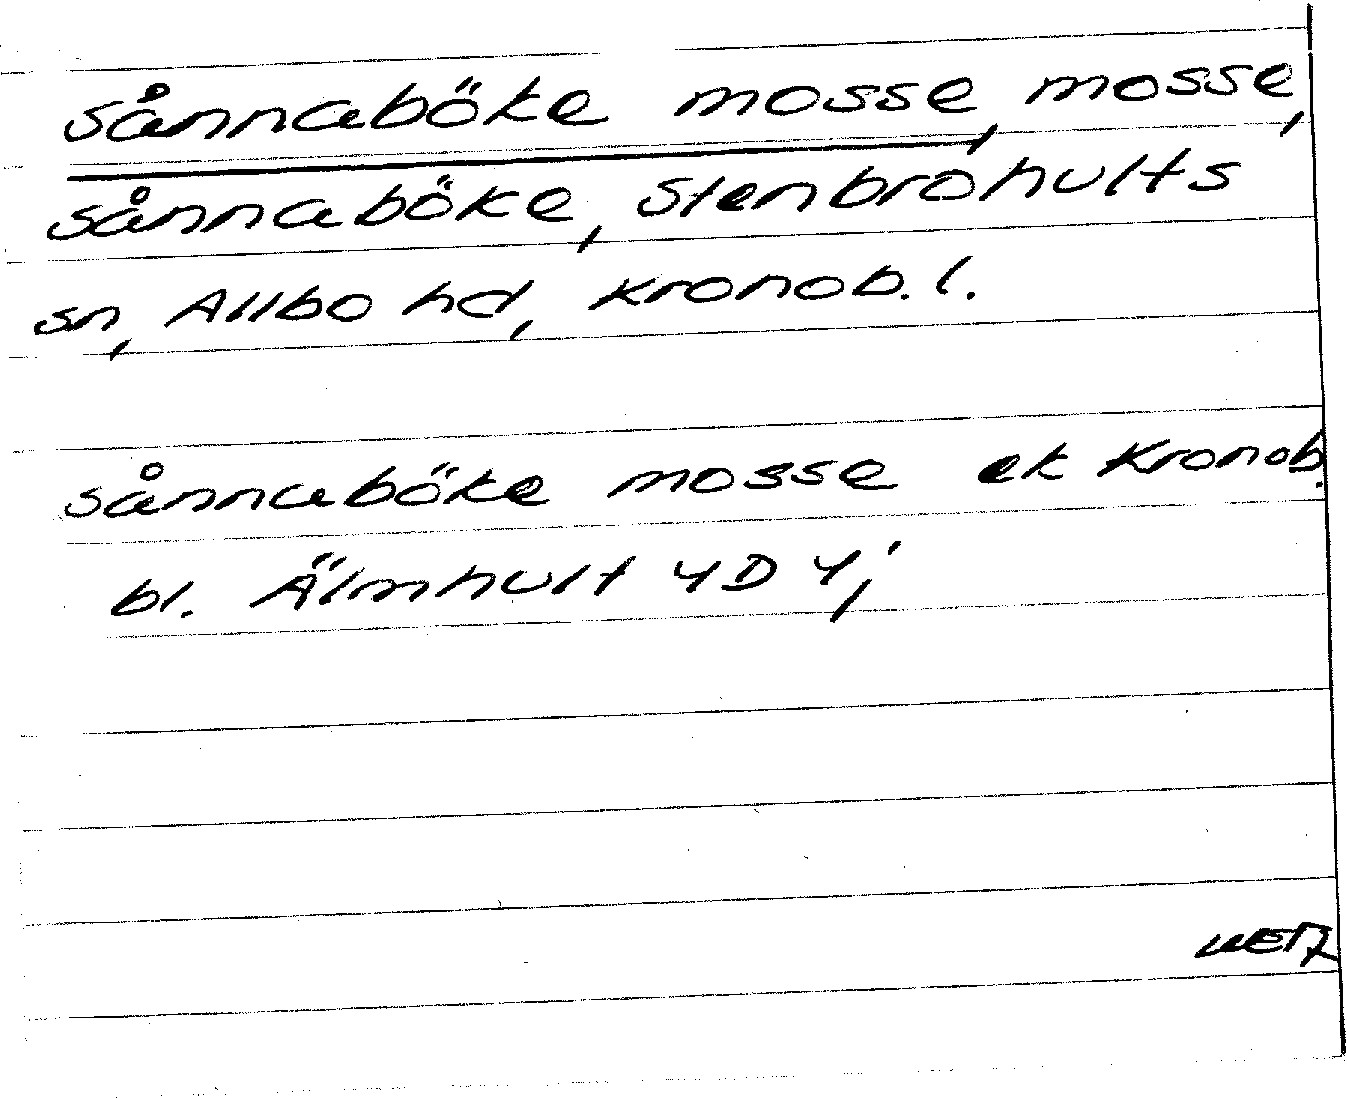 Sånnaböke mosse, mosse,
Sånnaböke, Stenbrohults
sn, Allbo hd, Kronob. l.
Sånnaböke mosse ek Kronob.
bl. Älmhult 4D 4;